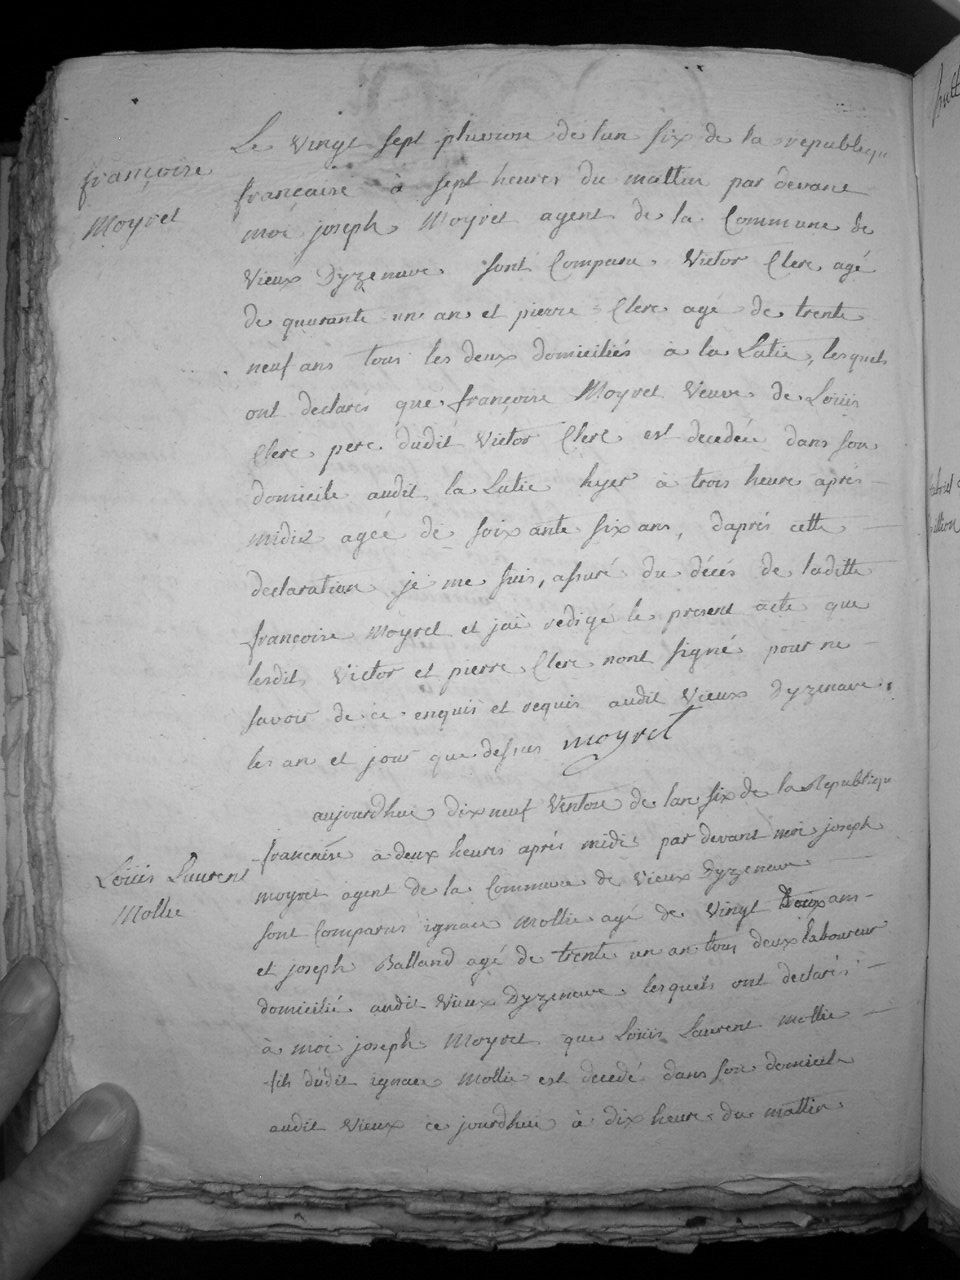 françoise
Moyret
Le vingt sept pluviose de lan six de la republiqu
française à sept heures du mattin par devant
moi joseph Moyret agent de la Commune de
Vieux Dyzenave sont Comparu Victor Clerc agé
de quarante un an et pierre Clerc agé de trente
neuf ans tous les deux domiciliés à la Latie, lesquels
ont declarés que françoise Moyret Veuve de Loüis
Clerc pere dudit Victor Clerc est decedée dans son
domicile audit la Latie hyer à trois heure après
midix agée de soixante six ans, daprés cette
declaration je me suis, assuré du décés de laditte
françoise Moyret et jai redigé le present acte que
lesdits Victor et pierre Clerc nont signé pour ne
savoir de ce enquis et requis audit Vieux Dyzenave
les an et jour que dessus moyret
Loüis Laurent
Mollie
aujourdhui dix neuf Ventose de lan six de la Republique
francaise à deux heures après midi par devant moi joseph
moyret agent de la Commune de Vieux Dyzeneuve
sont Comparus ignace Mollie agé de vingt Deux ans
et joseph Balland agé de trente un an tous deux laboureur
domicilié audit Vieux Dyzeneuve lesquels ont declarés
à moi joseph Moyret que Loüis Laurent Mollie
fils dudit ignace Mollie est decedé dans son domicile
audit Vieux ce jourdhui à dix heure du mattin